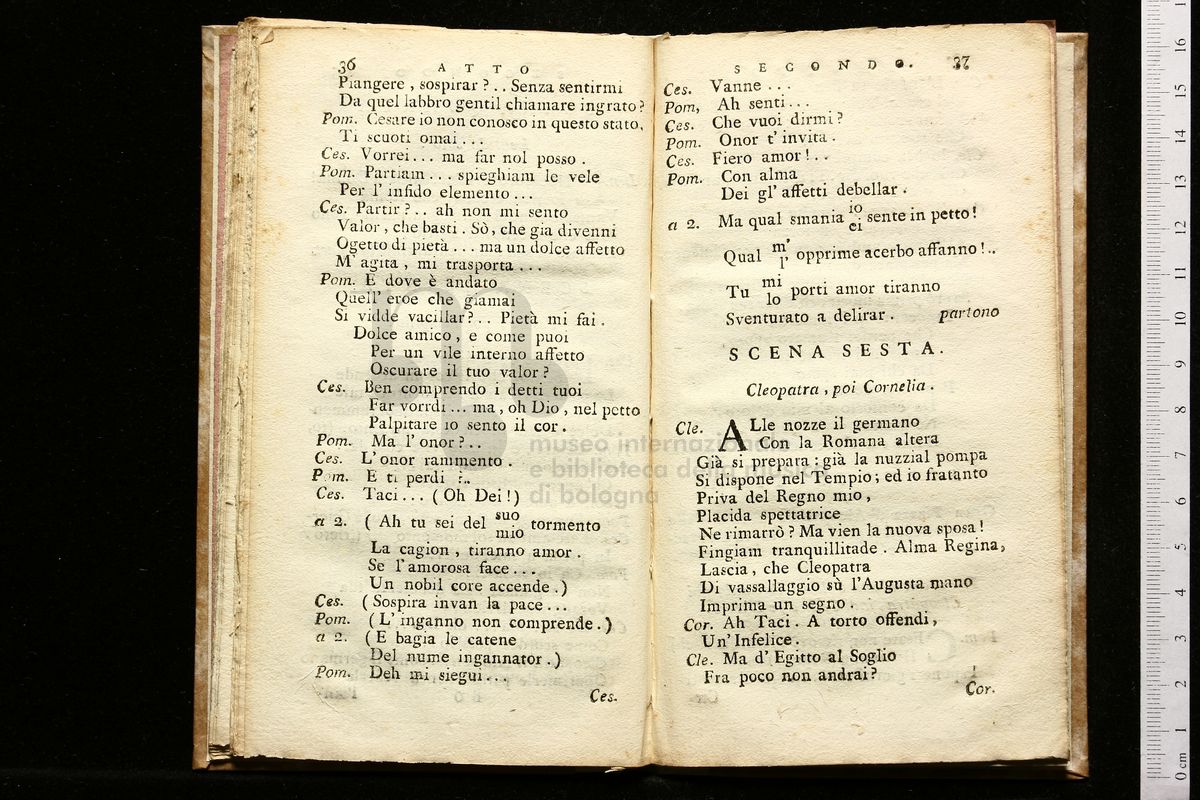 36 ATTO
Piangere , sospirar ? . . Senza sentirmi
Da quel labbro gentil chiamare ingrato?
Pom. Cesare io non conosco in questo stato,
Ti scuoti omai . . .
Ces. Vorrei . . . ma far nol posso .
Pom. Partiam . . . spieghiam le vele
Per l' infido elemento . . .
Ces. Partir ? . . ah non mi sento
Valor , che basti . Sò , che gia divenni
Ogetto di pietà . . . ma un dolce affetto
M' agita , mi trasporta . . .
Pom. E dove è andato
Quell' eroe che giamai
Si vidde vacillar ? . . Pietà mi fai .
Dolce amico , e come puoi
Per un vile interno affetto
Oscurare il tuo valor ?
Ces. Ben comprendo i detti tuoi
Far vorrdi . . . ma , oh Dio , nel petto
Palpitare io sento il cor .
Pom. Ma l' onor ? . .
Ces. L' onor rammento .
Pom. E ti perdi ? . .
Ces. Taci . . . ( Oh Dei ! )
a 2. ( Ah tu sei del suo tormento
mio
La cagion , tiranno amor .
Se l' amorosa face . . .
Un nobil core accende . )
Ces. ( Sospira invan la pace . . .
Pom. ( L' inganno non comprende . )
a 2. ( E bagia le catene
Del nume ingannator . )
Pom. Deh mi siegui . . .
Ces.
SECONDO. 37
Ces. Vanne . . .
Pom, Ah senti . . .
Ces. Che vuoi dirmi ?
Pom. Onor t' invita .
Ces. Fiero amor ! . .
Pom. Con alma
Dei gl' affetti debellar .
a 2. Ma qual smania io sente in petto !
ei
Qual m' opprime acerbo affanno ! . .
l'
Tu mi porti amor tiranno
lo
Sventurato a delirar . partono
SCENA SESTA.
Cleopatra , poi Cornelia .
Cle. ALle nozze il germano
Con la Romana altera
Già si prepara : già la nuzzial pompa
Si dispone nel Tempio ; ed io fratanto
Priva del Regno mio ,
Placida spettatrice
Ne rimarrò ? Ma vien la nuova sposa !
Fingiam tranquillitade . Alma Regina,
Lascia , che Cleopatra
Di vassallaggio sù l'Augusta mano
Imprima un segno .
Cor. Ah Taci . A torto offendi ,
Un' Infelice .
Cle. Ma d' Egitto al Soglio
Fra poco non andrai ?
Cor.
museo internazionale
e biblioteca della musica
di bologna
0 cm 1 2 3 4 5 6 7 8 9 10 11 12 13 14 15 16